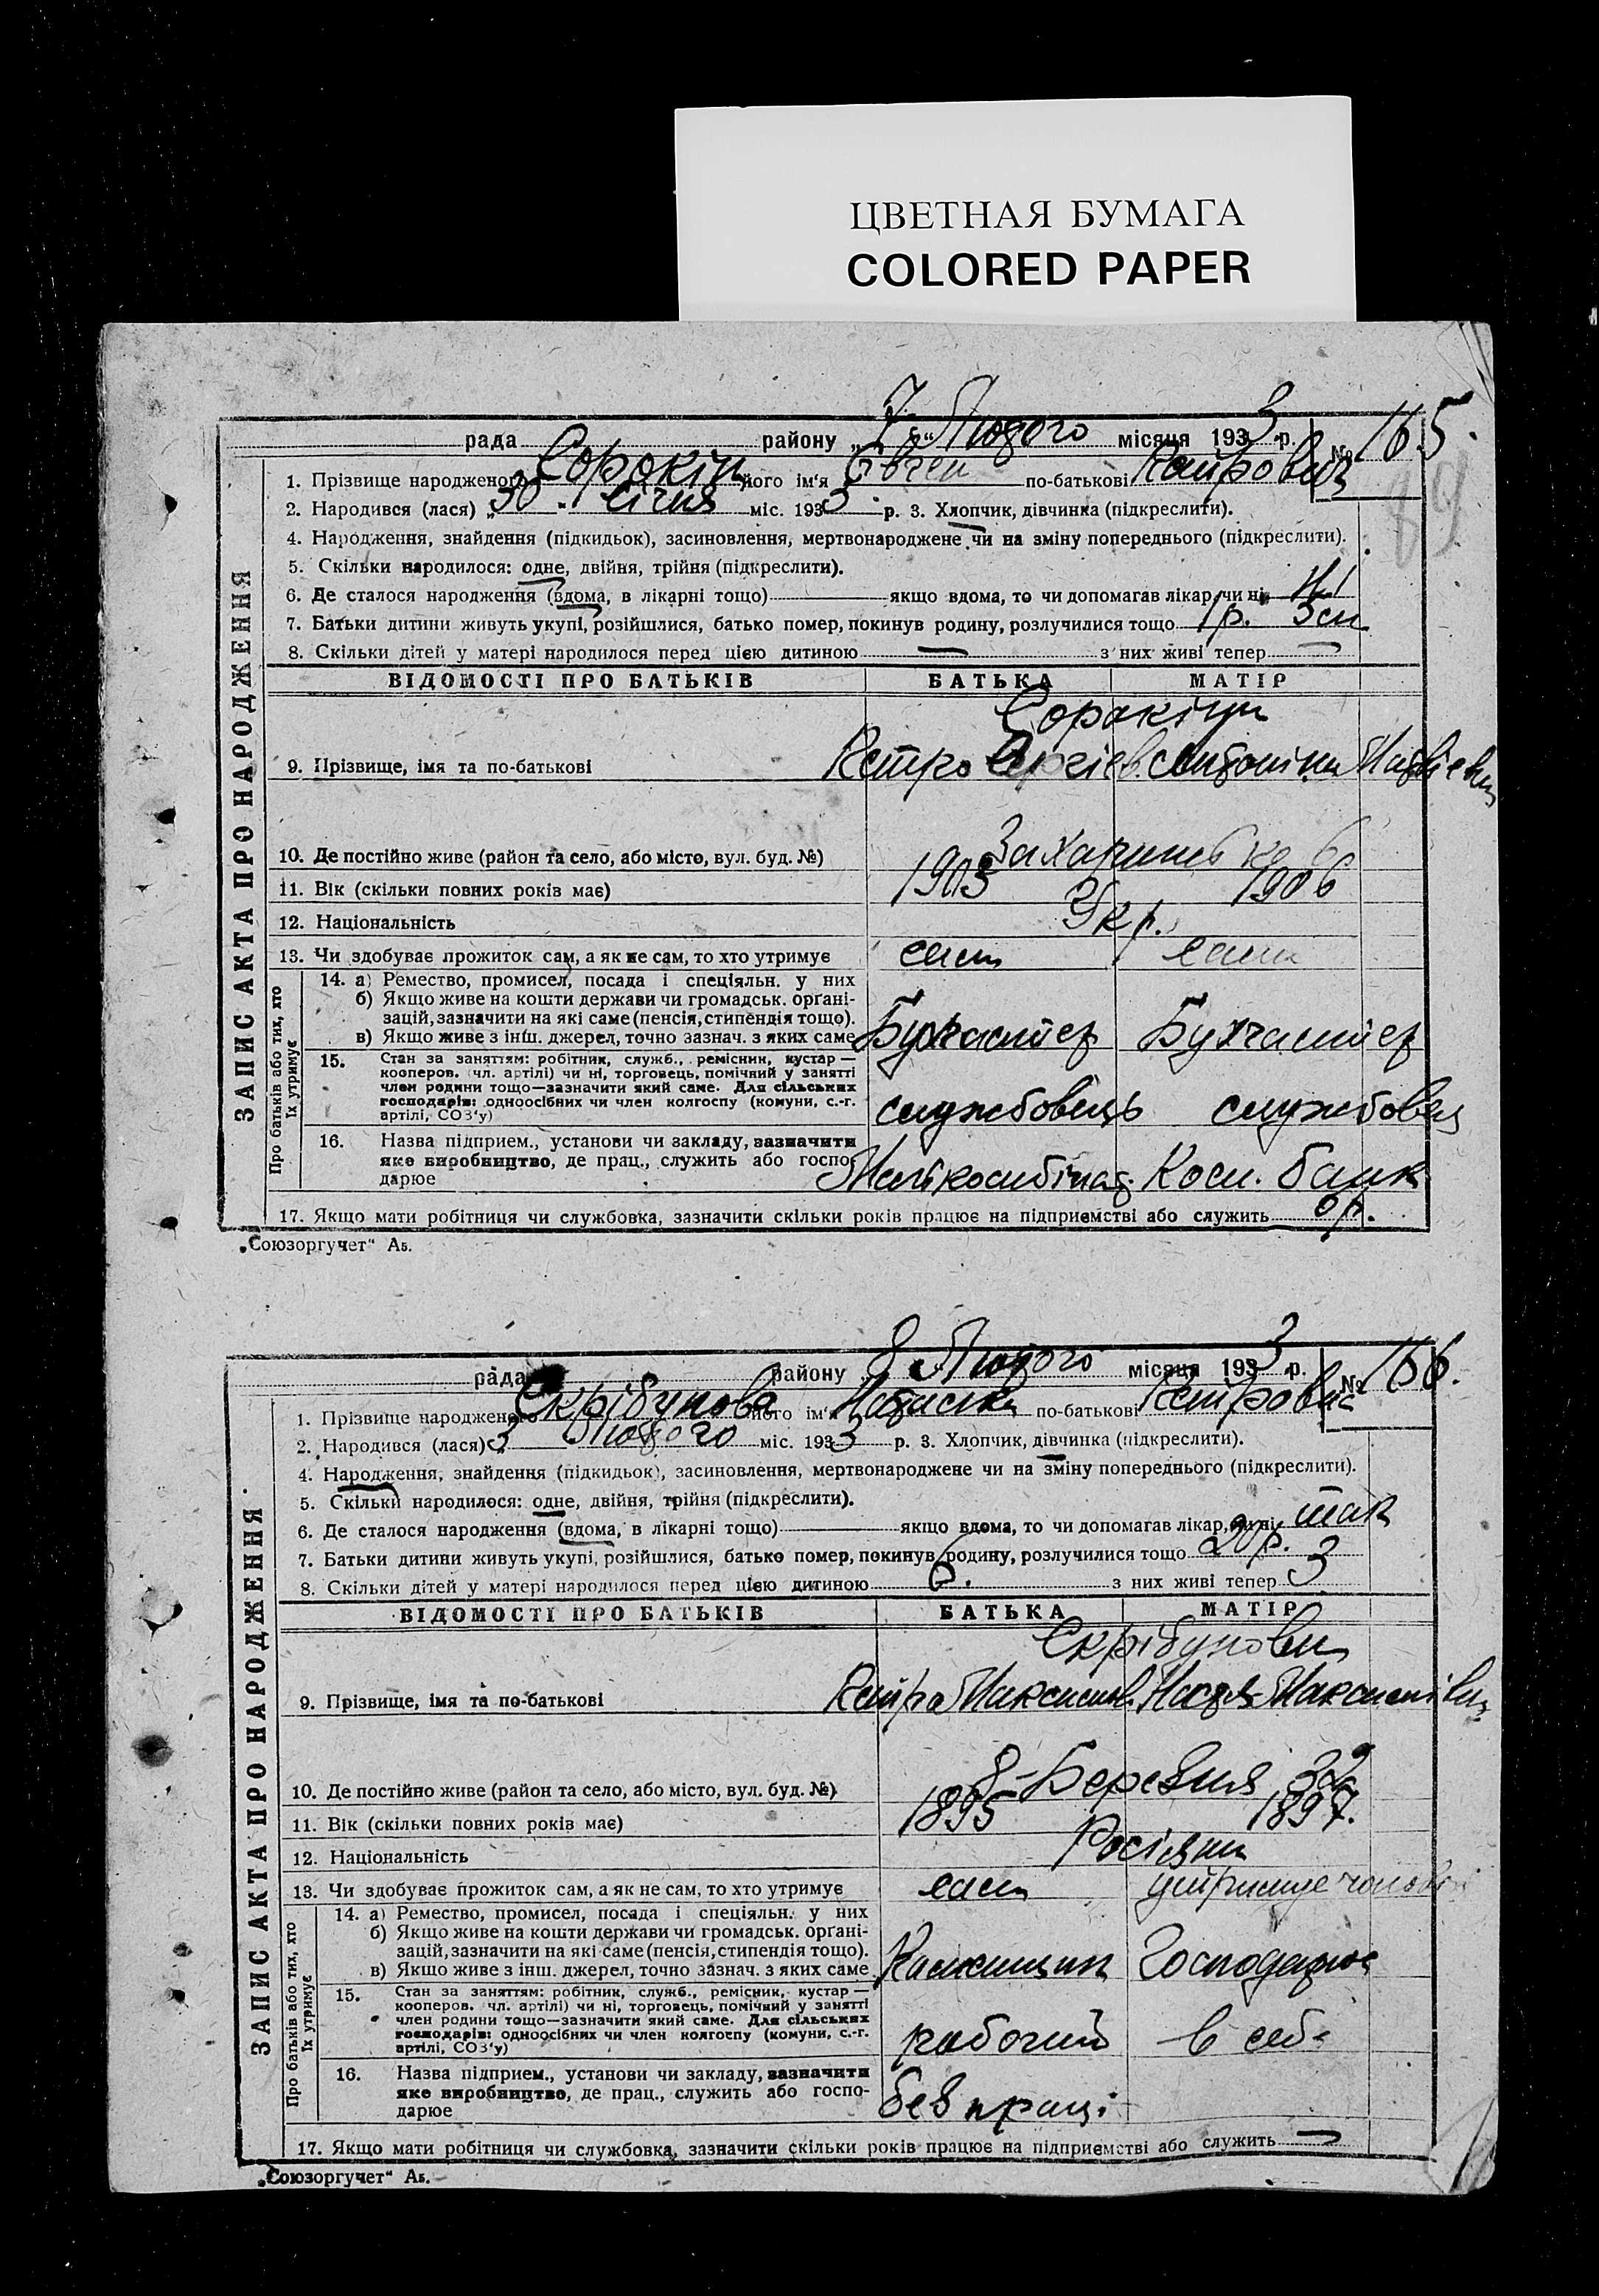 ЦВЕТНАЯ БУМАГА
COLORED PAPER
рада району „7“ Лютого місяця 1933 р. № 165.
89
ЗАПИС АКТА ПРО НАРОДЖЕННЯ
1. Прізвище народженого Сорокін його ім'я Євген по-батькові Петрович
2. Народився (лася) „30“ січня міс. 1933 р. 3. Хлопчик, дівчинка (підкреслити).
4. Народження, знайдення (підкидьок), засиновлення, мертвонароджене чи на зміну попереднього (підкреслити).
5. Скільки народилося: одне, двійня, трійня (підкреслити).
6. Де сталося народження (вдома, в лікарні тощо) якщо вдома, то чи допомагав лікар, чи ні Ні
7. Батьки дитини живуть укупі, розійшлися, батько помер, покинув родину, розлучилися тощо 1р. 3м
8. Скільки дітей у матері народилося перед цією дитиною — з них живі тепер —
ВІДОМОСТІ ПРО БАТЬКІВ БАТЬКА МАТІР
Сорокіни
9. Прізвище, імя та по-батькові Петро Антоніна Матвіевна
10. Де постійно живе (район та село, або місто, вул. буд. №)
11. Вік (скільки повних років має) 1903 1906
12. Національність Укр.
13. Чи здобуває прожиток сам, а як не сам, то хто утримує сам сама
Про батьків або тих, хто їх утримує
14. а) Ремество, промисел, посада і спеціяльн. у них
б) Якщо живе на кошти держави чи громадськ. орґані-
зацій, зазначити на які саме (пенсія, стипендія тощо).
в) Якщо живе з інш. джерел, точно зазнач. з яких саме Бухгалтер Бухгалтер
15. Стан за заняттям: робітник, служб., ремісник, кустар —
кооперов. чл. артілі) чи ні, торговець, помічний у занятті
член родини тощо—зазначити який саме. Для сільських
господарів: одноосібних чи член колгоспу (комуни, с.-г.
артілі, СОЗ'у) службовець службовец
16. Назва підприєм., установи чи закладу, зазначити
яке виробництво, де прац., служить або госпо-
дарює Ком. банк
17. Якщо мати робітниця чи службовка, зазначити скільки років працює на підприємстві або служить 6 р.
„Союзоргучет“ Аб.
рада району 8 Лютого місяця 1933 р. № 166.
ЗАПИС АКТА ПРО НАРОДЖЕННЯ
1. Прізвище народженого Скрібунова його ім'я по-батькові
2. Народився (лася) 3 Лютого міс. 1933 р. 3. Хлопчик, дівчинка (підкреслити).
4. Народження, знайдення (підкидьок), засиновлення, мертвонароджене чи на зміну попереднього (підкреслити).
5. Скільки народилося: одне, двійня, трійня (підкреслити).
6. Де сталося народження (вдома, в лікарні тощо) якщо вдома, то чи допомагав лікар, чи ні так
7. Батьки дитини живуть укупі, розійшлися, батько помер, покинув родину, розлучилися тощо 20р.
8. Скільки дітей у матері народилося перед цією дитиною 6. з них живі тепер 3
ВІДОМОСТІ ПРО БАТЬКІВ БАТЬКА МАТІР
Скрібунови
9. Прізвище, імя та по-батькові Петро Максимов. Надя Максимівна
10. Де постійно живе (район та село, або місто, вул. буд. №) 8-Березня 32
11. Вік (скільки повних років має) 1895 1897.
12. Національність Росіяни
13. Чи здобуває прожиток сам, а як не сам, то хто утримує сам утримує чоловік
Про батьків або тих, хто їх утримує
14. а) Ремество, промисел, посада і спеціяльн. у них
б) Якщо живе на кошти держави чи громадськ. орґані-
зацій, зазначити на які саме (пенсія, стипендія тощо).
в) Якщо живе з інш. джерел, точно зазнач. з яких саме Господарює
15. Стан за заняттям: робітник, служб., ремісник, кустар —
кооперов. чл. артілі) чи ні, торговець, помічний у занятті
член родини тощо—зазначити який саме. Для сільських
господарів: одноосібних чи член колгоспу (комуни, с.-г.
артілі, СОЗ'у) рабочий в себе
16. Назва підприєм., установи чи закладу, зазначити
яке виробництво, де прац., служить або госпо-
дарює без праці
17. Якщо мати робітниця чи службовка, зазначити скільки років працює на підприємстві або служить —
„Союзоргучет“ Аб.